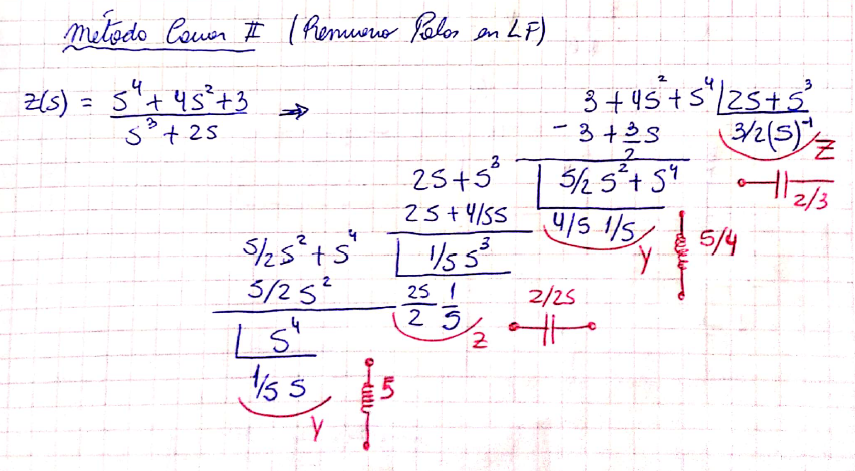 Método Cauer II (Remuevo Polos en LF)
Z(s) = S⁴ + 4S² + 3 / S³ + 2S ⇒
3 + 4S² + S⁴ | 2S + S³
- 3 + 3/2 S
3/2 (S)⁻¹
Z
2/3
2S + S³
5/2 S² + S⁴
2S + 4/5S
4/5 1/S
Y
5/4
5/2 S² + S⁴
1/5 S³
5/2 S²
25/2 1/S
Z
2/25
S⁴
1/5 S
Y
5